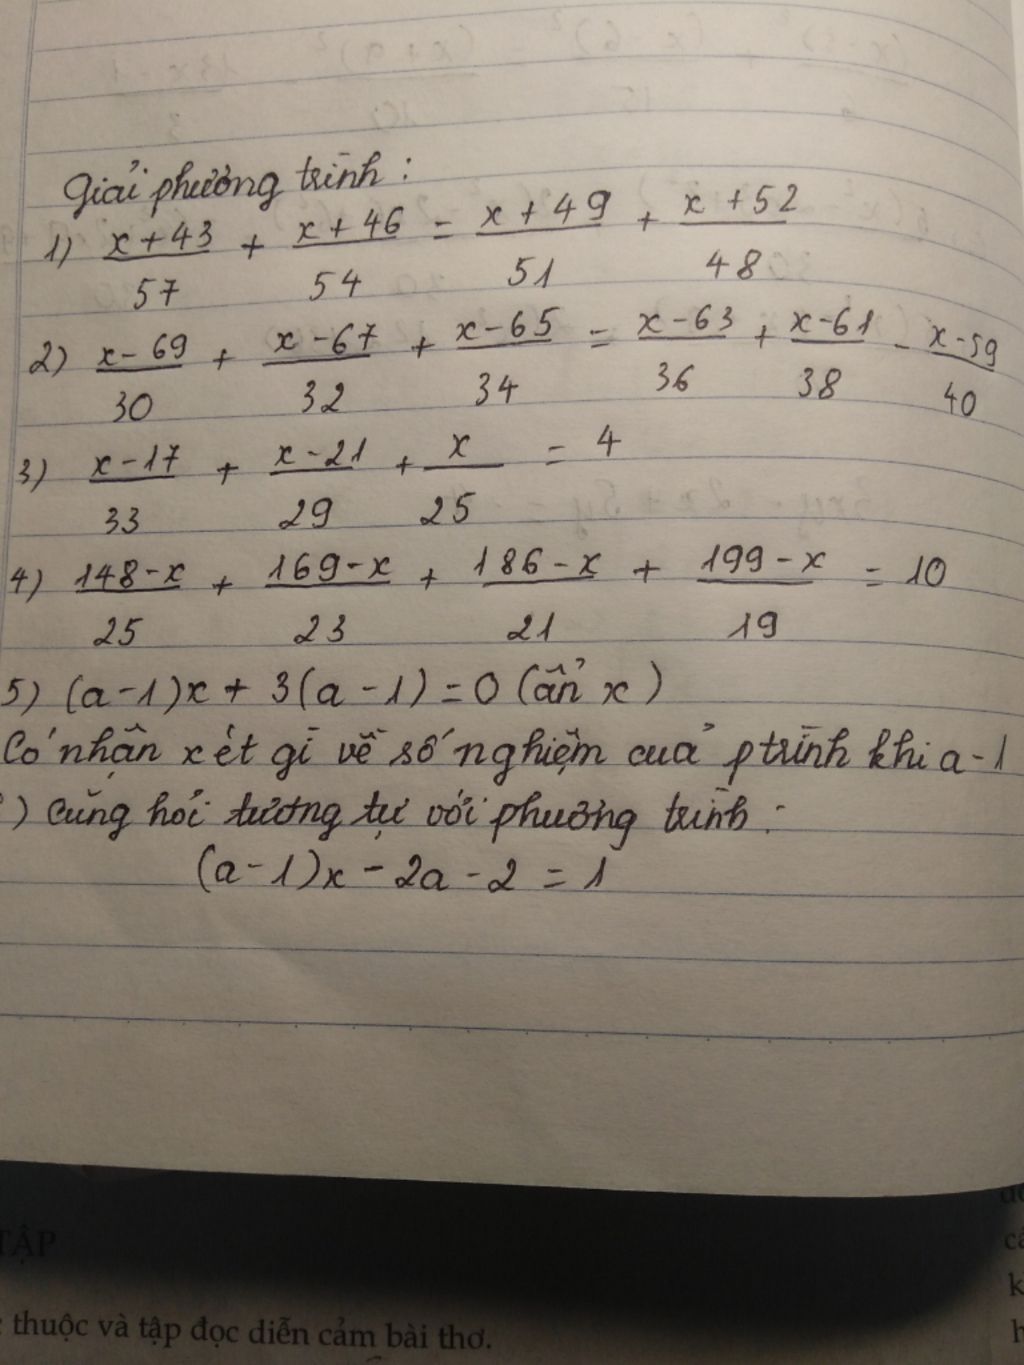 Giải phương trình:
1) \frac{x+43}{57} + \frac{x+46}{54} = \frac{x+49}{51} + \frac{x+52}{48}
2) \frac{x-69}{30} + \frac{x-67}{32} + \frac{x-65}{34} = \frac{x-63}{36} + \frac{x-61}{38} - \frac{x-59}{40}
3) \frac{x-17}{33} + \frac{x-21}{29} + \frac{x}{25} = 4
4) \frac{148-x}{25} + \frac{169-x}{23} + \frac{186-x}{21} + \frac{199-x}{19} = 10
5) (a-1)x + 3(a-1) = 0 (ẩn x)
Có nhận xét gì về số nghiệm của ptrình khi a-1
) Cũng hỏi tương tự với phương trình:
(a-1)x - 2a - 2 = 1
TẬP
thuộc và tập đọc diễn cảm bài thơ.